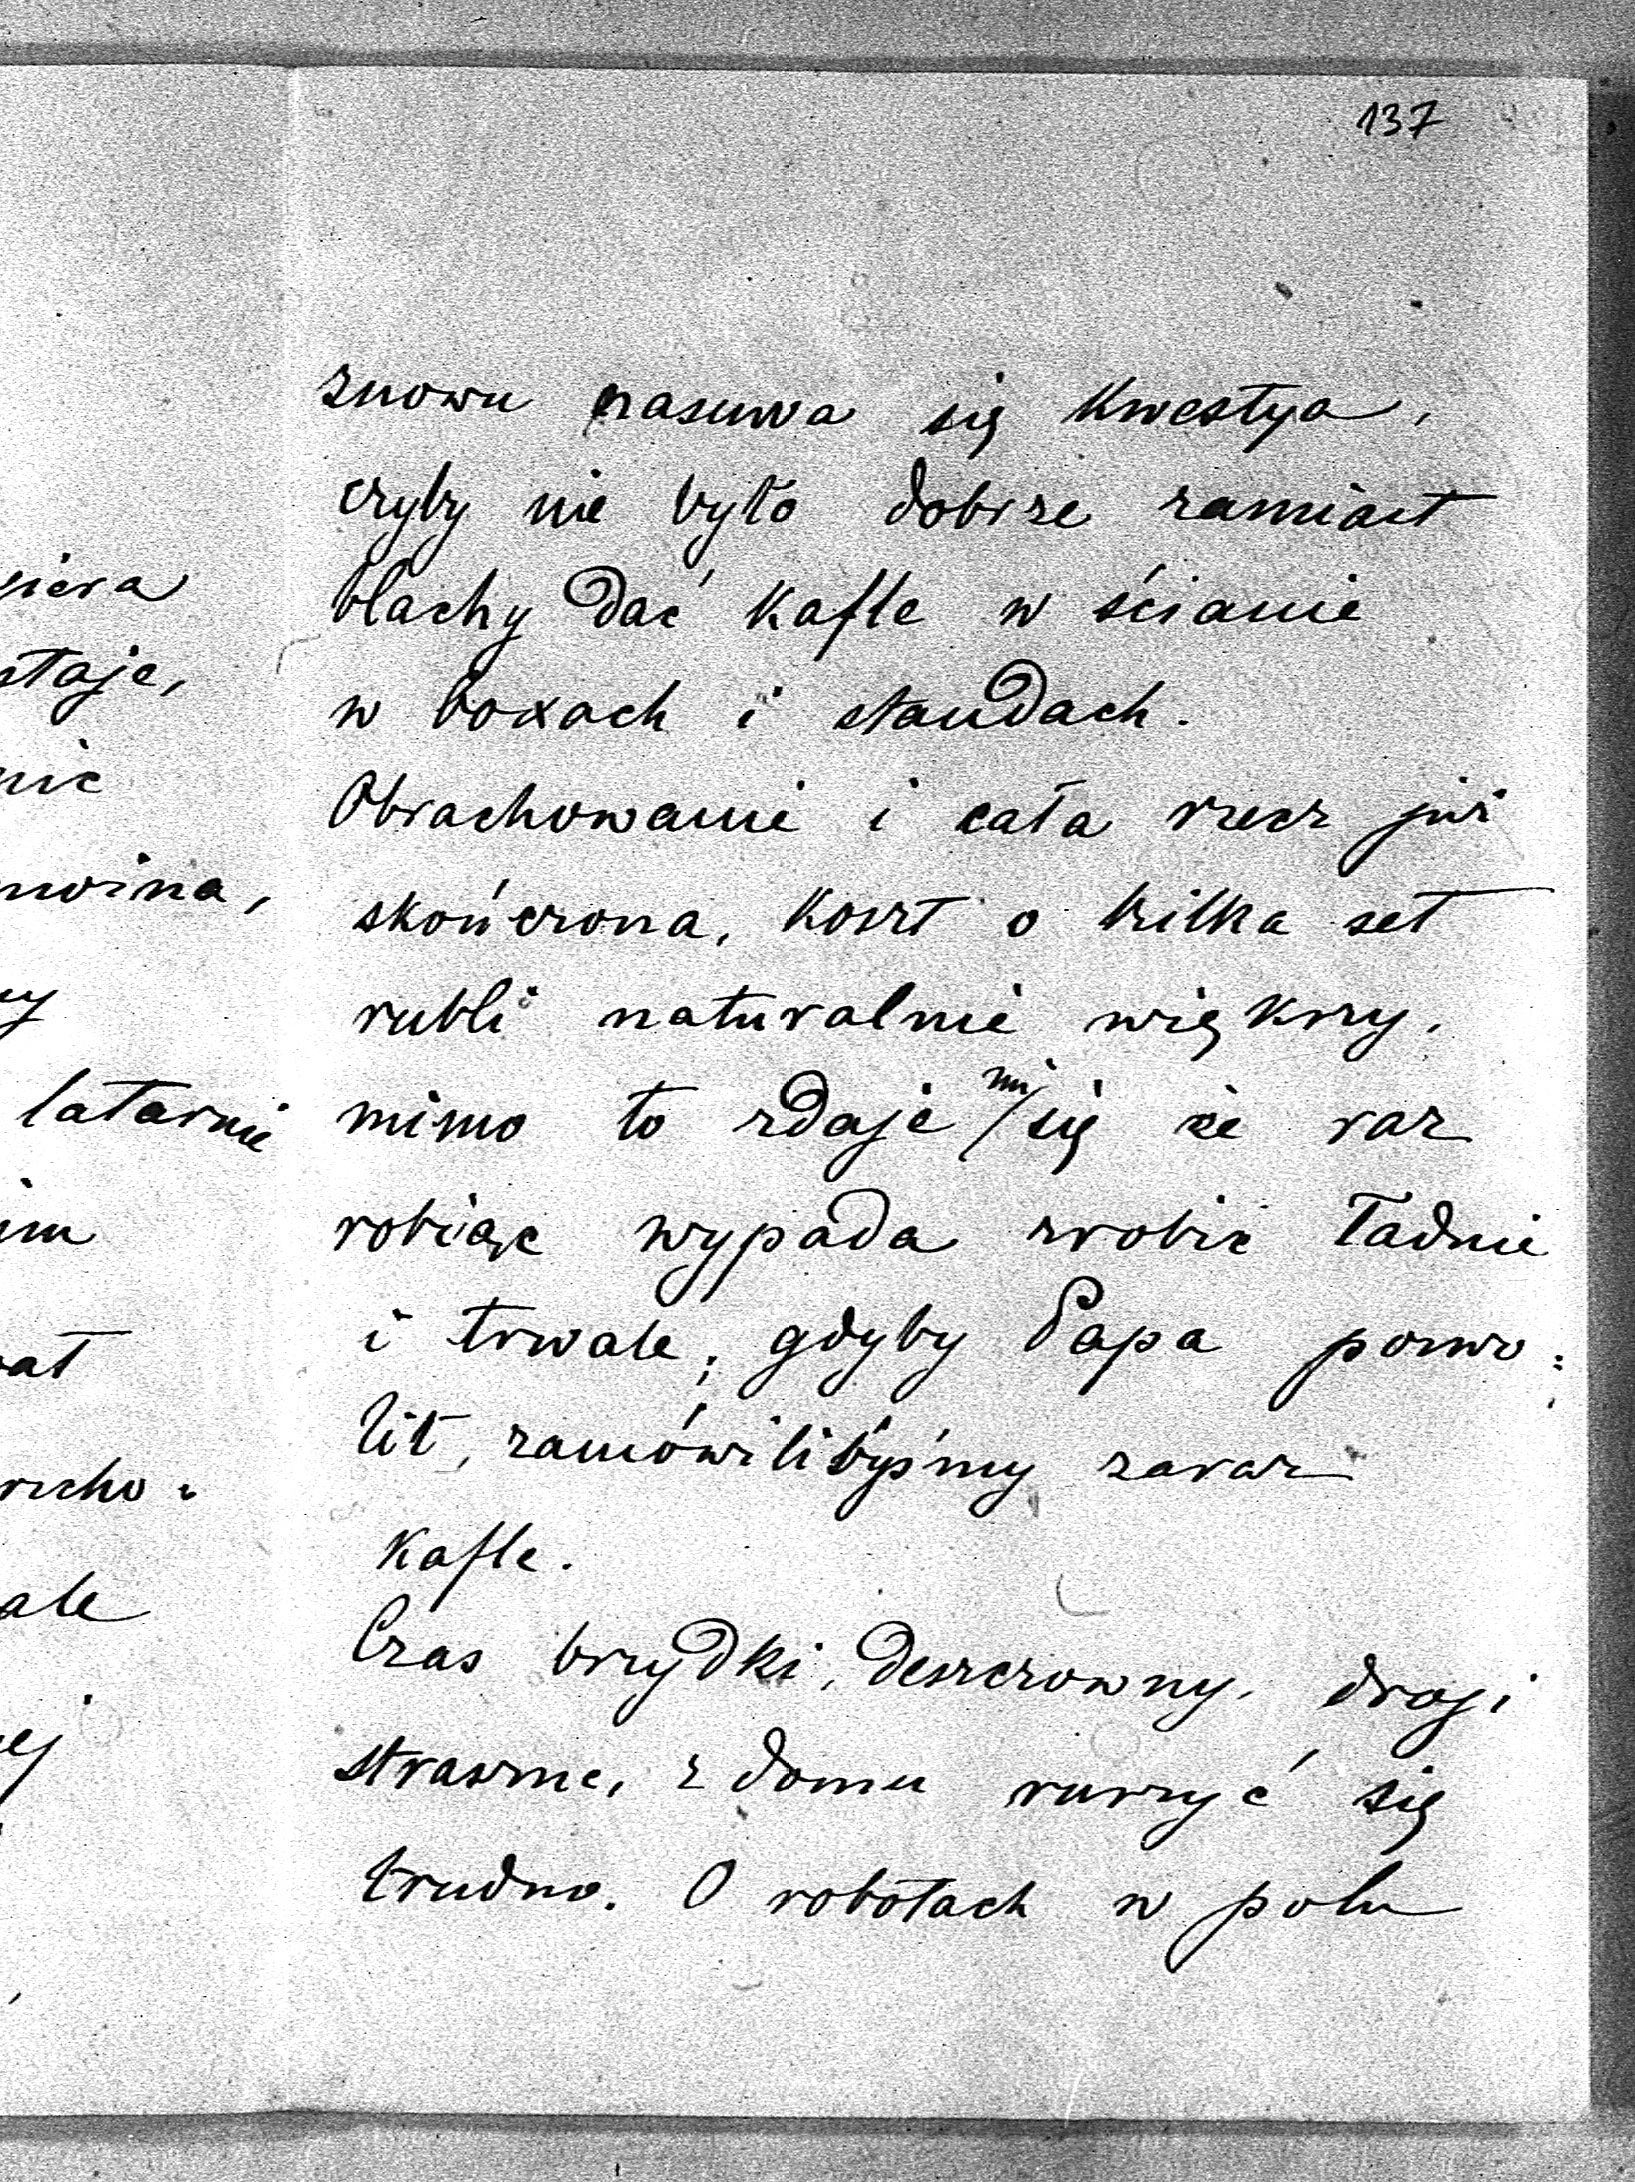 137
znowu nasuwa się kwestya,
czyby nie było dobrze zamiast
blachy dać kafle w ścianie
w boxach i standach.
Obrachowanie i cała rzecz już
skończona, koszt o kilka set
rubli naturalnie większy,
mimo to zdaje mi się że raz
robiąc wypada zrobić ładnie
i trwale; gdyby Papa pozwo:
lił, zamówilibyśmy zaraz
kafle.
Czas brzydki, deszczowny, drogi
straszne, z domu ruszyć się
trudno. O robotach w polu
staje,
latarnie
ale